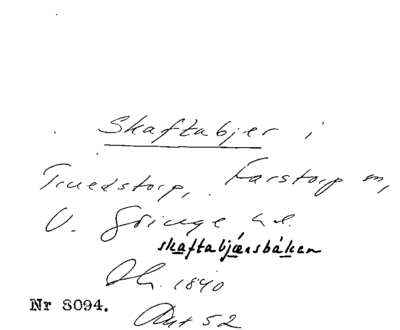 Skaftabjer i
Truedstorp, Farstorp sn,
V. Göinge hd.
skaftabjærsbákan
Ant 52
1840
Nr 8094.